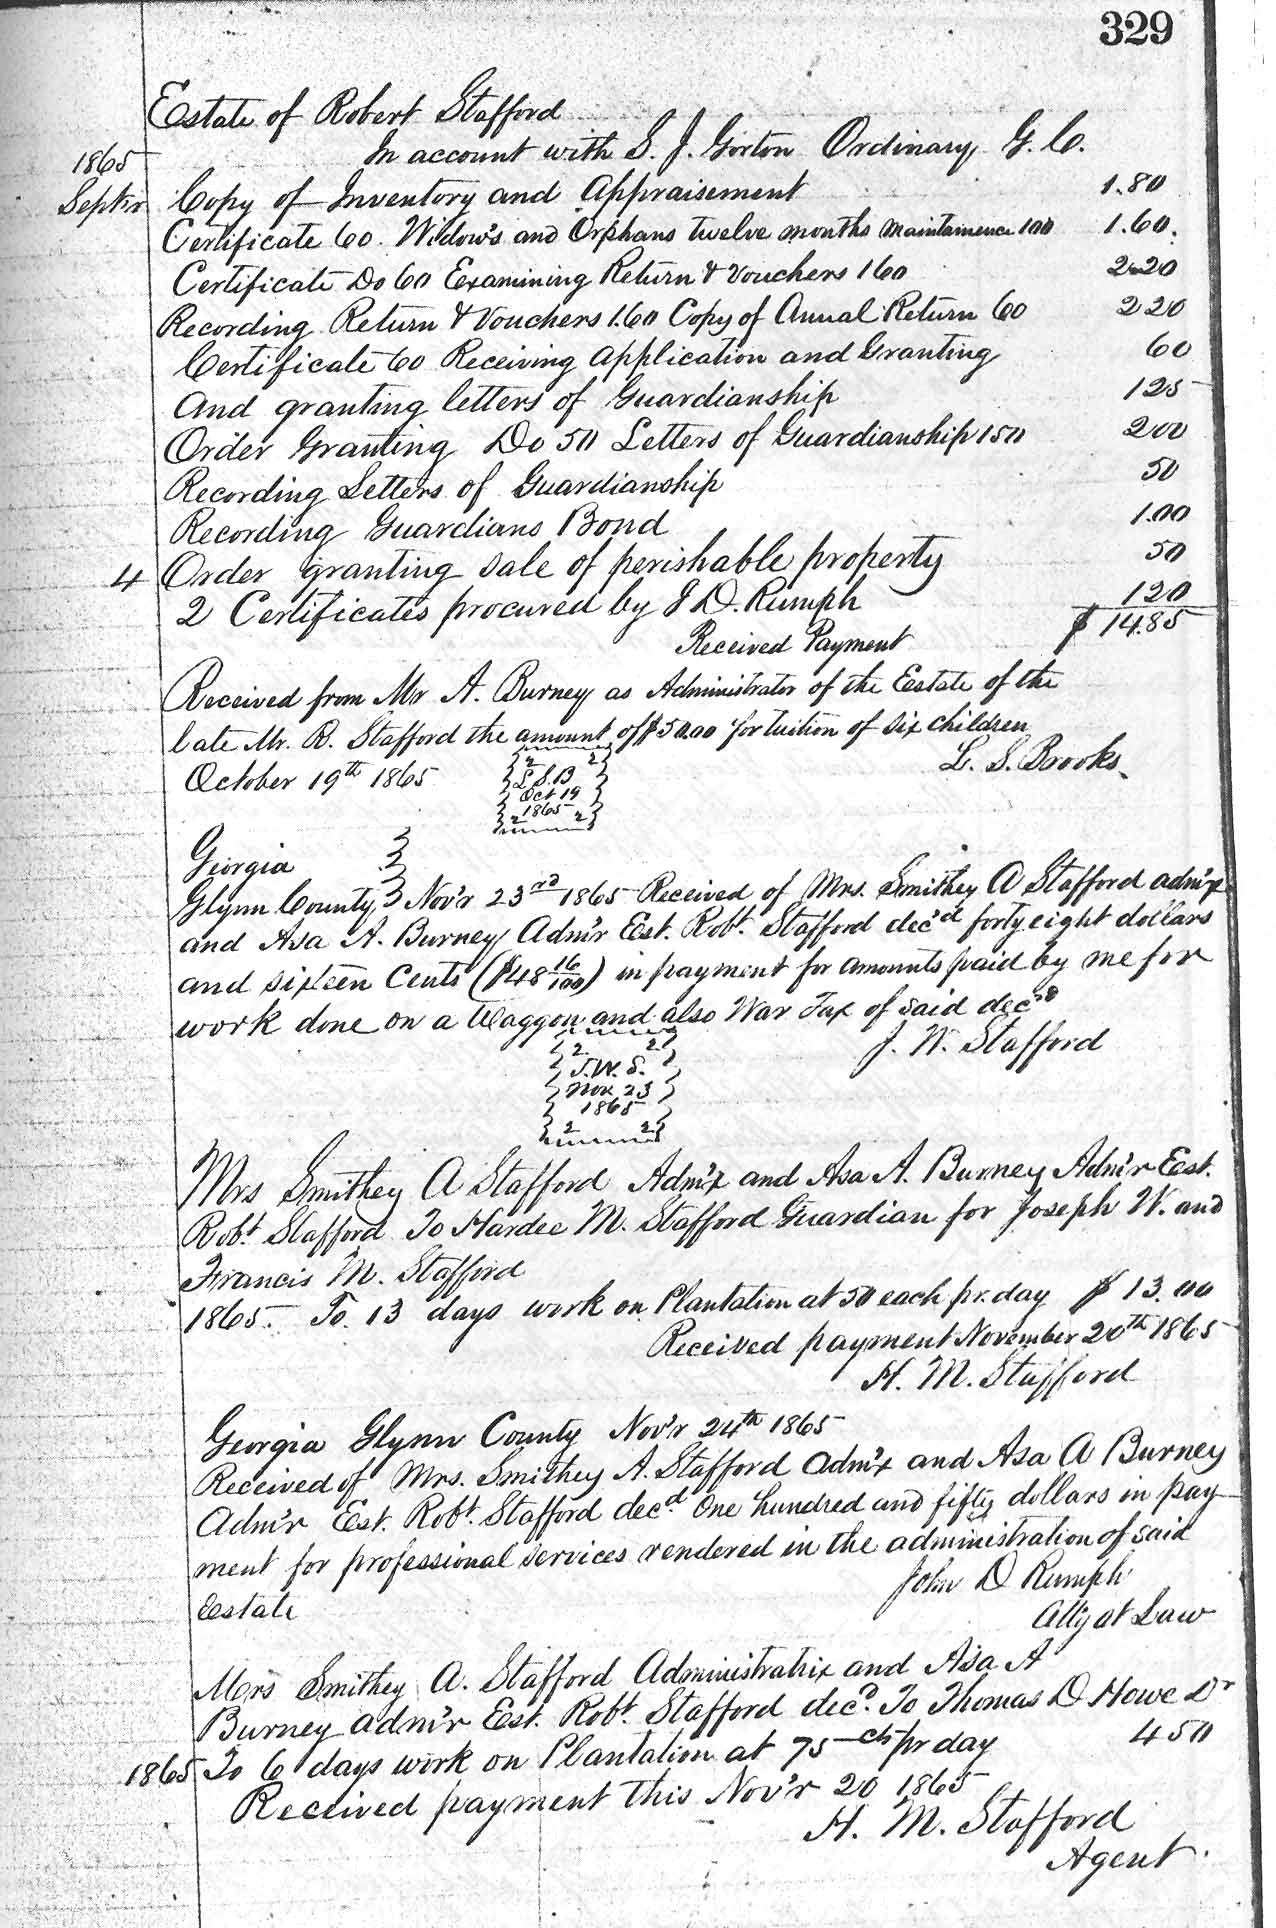 329
Estate of Robert Stafford
In account with S. J. Gorton Ordinary G. C.
1865
Septr Copy of Inventory and Appraisement 1.80
Certificate 60. Widow's and Orphans twelve months maintainence 100 1.60.
Certificate Do 60 Examining Return & Vouchers 160 2.20
Recording Return & Vouchers 1.60 Copy of Anual Return 60 2 20
Certificate 60 Receiving application and Granting 60
And granting letters of Guardianship 125
Order Granting Do 50 Letters of Guardianship 150 200
Recording Letters of Guardianship 50
Recording Guardians Bond 1.00
4 Order granting sale of perishable property 50
2 Certificates procured by J D. Rumph 120
Received Payment $ 14.85
Received from Mr A. Burney as Administrator of the Estate of the
late Mr. R. Stafford the amount of $50.00 for tuition of six children
October 19th 1865 L. S. Brooks
2 2
L S. B
Oct 19
1865
2 2
Georgia
Glynn County Nov'r 23rd 1865 Received of Mrs. Smithey A Stafford adm'x
and Asa A. Burney Adm'r Est. Robt. Stafford dec'd forty eight dollars
and sixteen Cents ($48 16/100) in payment for amounts paid by me for
work done on a Waggon and also War Tax of said decd
J. W. Stafford
2 2
J. W. S.
Nov 23
1865
2 2
Mrs Smithey A Stafford Adm'x and Asa A. Burney Adm'r Est.
Robt Stafford To Hardee M. Stafford Guardian for Joseph W. and
Francis M. Stafford
1865. To 13 days work on Plantation at 50 each pr. day $ 13.00
Received payment November 20th 1865
H. M. Stafford
Georgia Glynn County Nov'r 24th 1865
Received of Mrs. Smithey A. Stafford adm'x and Asa A Burney
Adm'r Est. Robt. Stafford decd One hundred and fifty dollars in pay
ment for professional services rendered in the administration of said
Estate John D Rumph
Atty at Law
Mrs Smithey A. Stafford Administratrix and Asa A
Burney adm'r Est. Robt. Stafford decd. To Thomas D Howe Dr
1865 To 6 days work on Plantation at 75 cts pr day 450
Received payment this Nov'r 20 1865
H. M. Stafford
Agent.